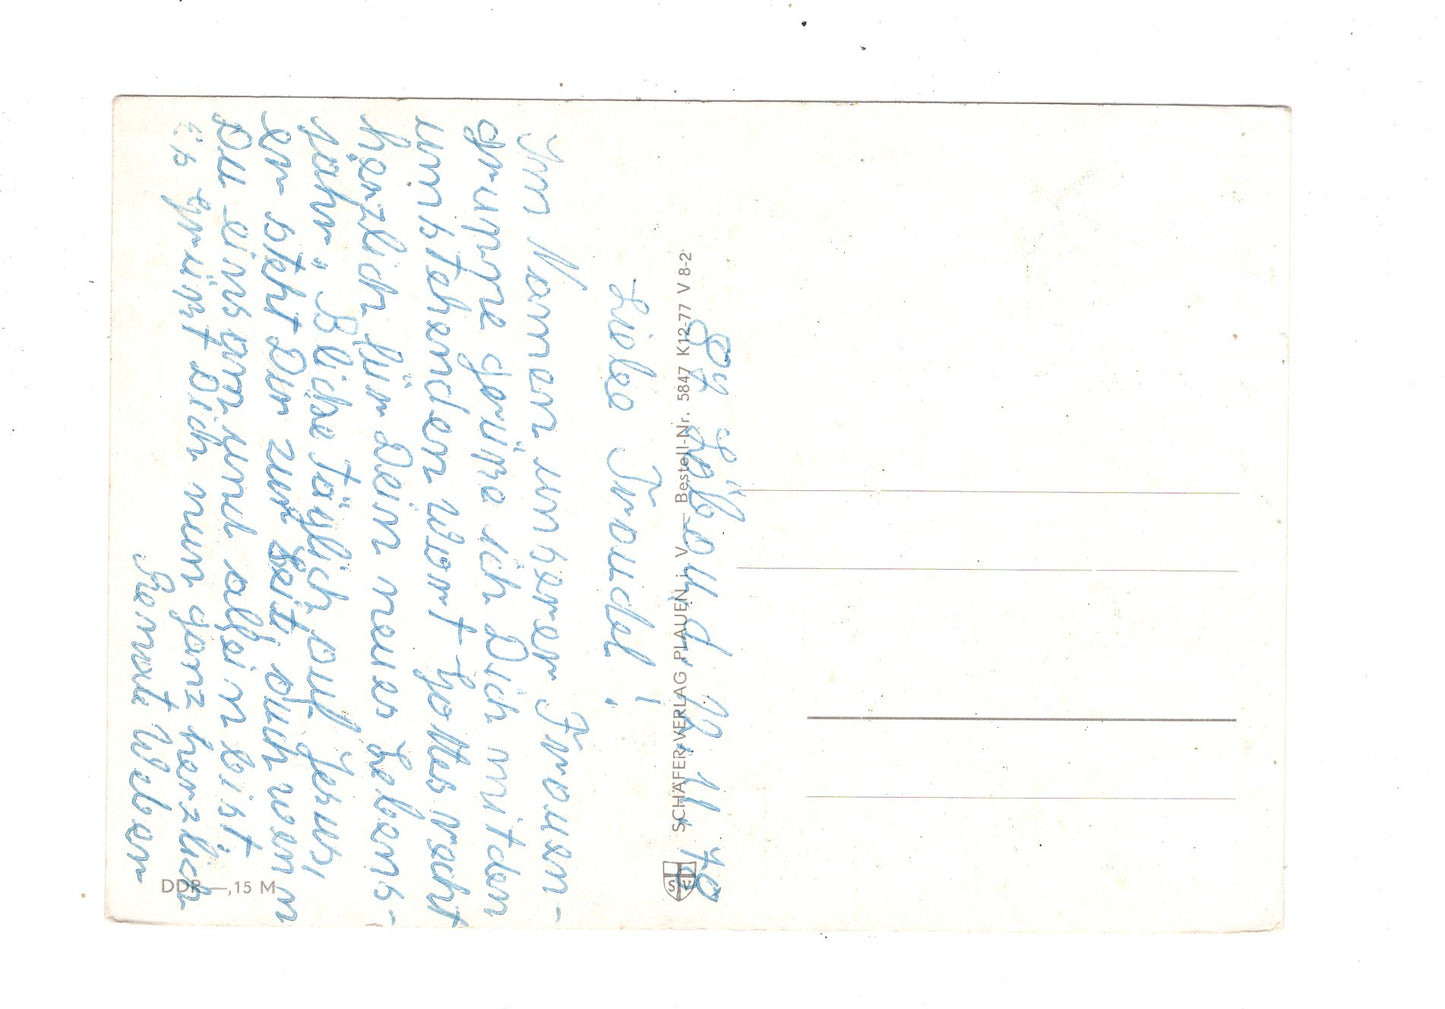 87 Löbau, d. 11. 11. 78
Liebe Traudel!
Im Namen unserer Frauen-
gruppe grüße ich Dich mit den
umstehenden Wort Gottes recht
herzlich für Dein neues Lebens-
jahr. Blicke täglich auf Jesus!
er steht Dir zur Seite auch wenn
Du einsam und allein bist.
Es grüßt Dich nun ganz herzlich
Renate Weber
SCHÄFER-VERLAG PLAUEN i. V. — Bestell-Nr. 5847 K12-77 V 8-2
SV
DDR —,15 M